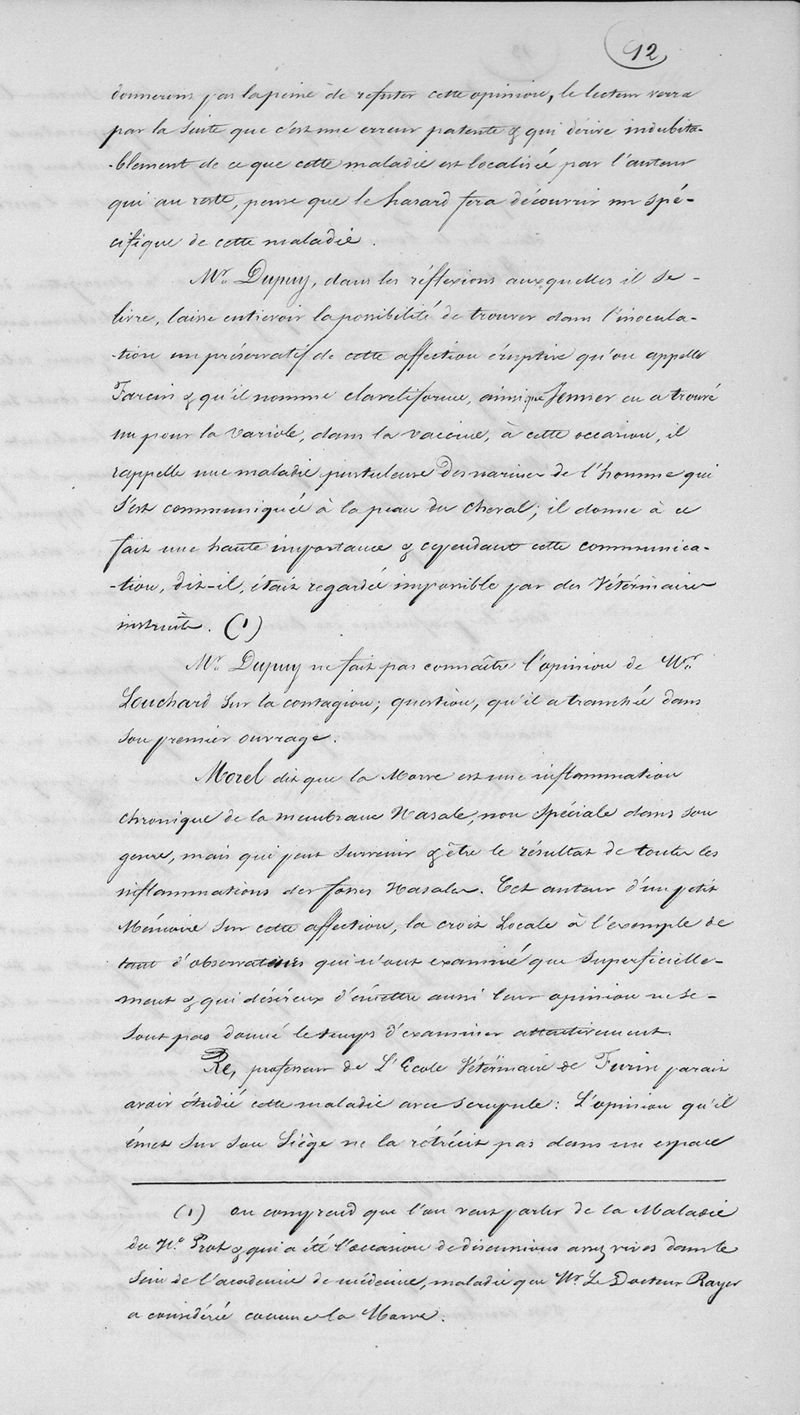 12
donnerons pas la peine de refuter cette opinion, le lecteur verra
par la suite que c'est une erreur patente & qui dérive indubita-
-blement de ce que cette maladie est localisée par l'auteur
qui au reste, pense que le hasard fera découvrir un spé-
cifique de cette maladie.
Mr. Dupuy, dans les réflexions auxquelles il se-
livre, laisse entrevoir la possibilité de trouver dans l'inocula-
-tion un préservatif de cette affection éruptive qu'on appelle
Farcin & qu'il nomme claveliforme, ainsi que Jenner en a trouvé
un pour la variole, dans la vaccine, à cette occasion, il
rappelle une maladie pustuleuse des narines de l'homme qui
s'est communiquée à la peau du cheval; il donne à ce
fait une haute importance & cependant cette communica-
-tion, dit-il, était regardée impossible par des Vétérinaires
instruits. (1)
Mr. Dupuy ne fait pas connaître l'opinion de Mr.
Louchard sur la contagion; question, qu'il a tranchée dans
son premier ouvrage.
Morel dit que la Morve est une inflammation
chronique de la membrane Nasale, non spéciale dans son
genre, mais qui peut survenir & être le résultat de toutes les
inflammations des fosses Nasales. Cet auteur d'un petit
Mémoire sur cette affection, la croit Locale à l'exemple de
tant d'observateurs qui n'ont examiné que superficielle-
ment & qui désireux d'émettre aussi leur opinion ne se-
sont pas donné le temps d'examiner attentivement.
Re, professeur de L'Ecole Vétérinaire de Turin parait
avoir étudié cette maladie avec scrupule: L'opinion qu'il
émet sur son Siège ne la rétrécit pas dans un espace
(1) on comprend que l'on veut parler de la Maladie
du No. Prot & qui a été l'occasion de discussions assez vives dans le
sein de l'academie de médecine, maladie que Mr. Le Docteur Rayer
a considérée comme la Morve.